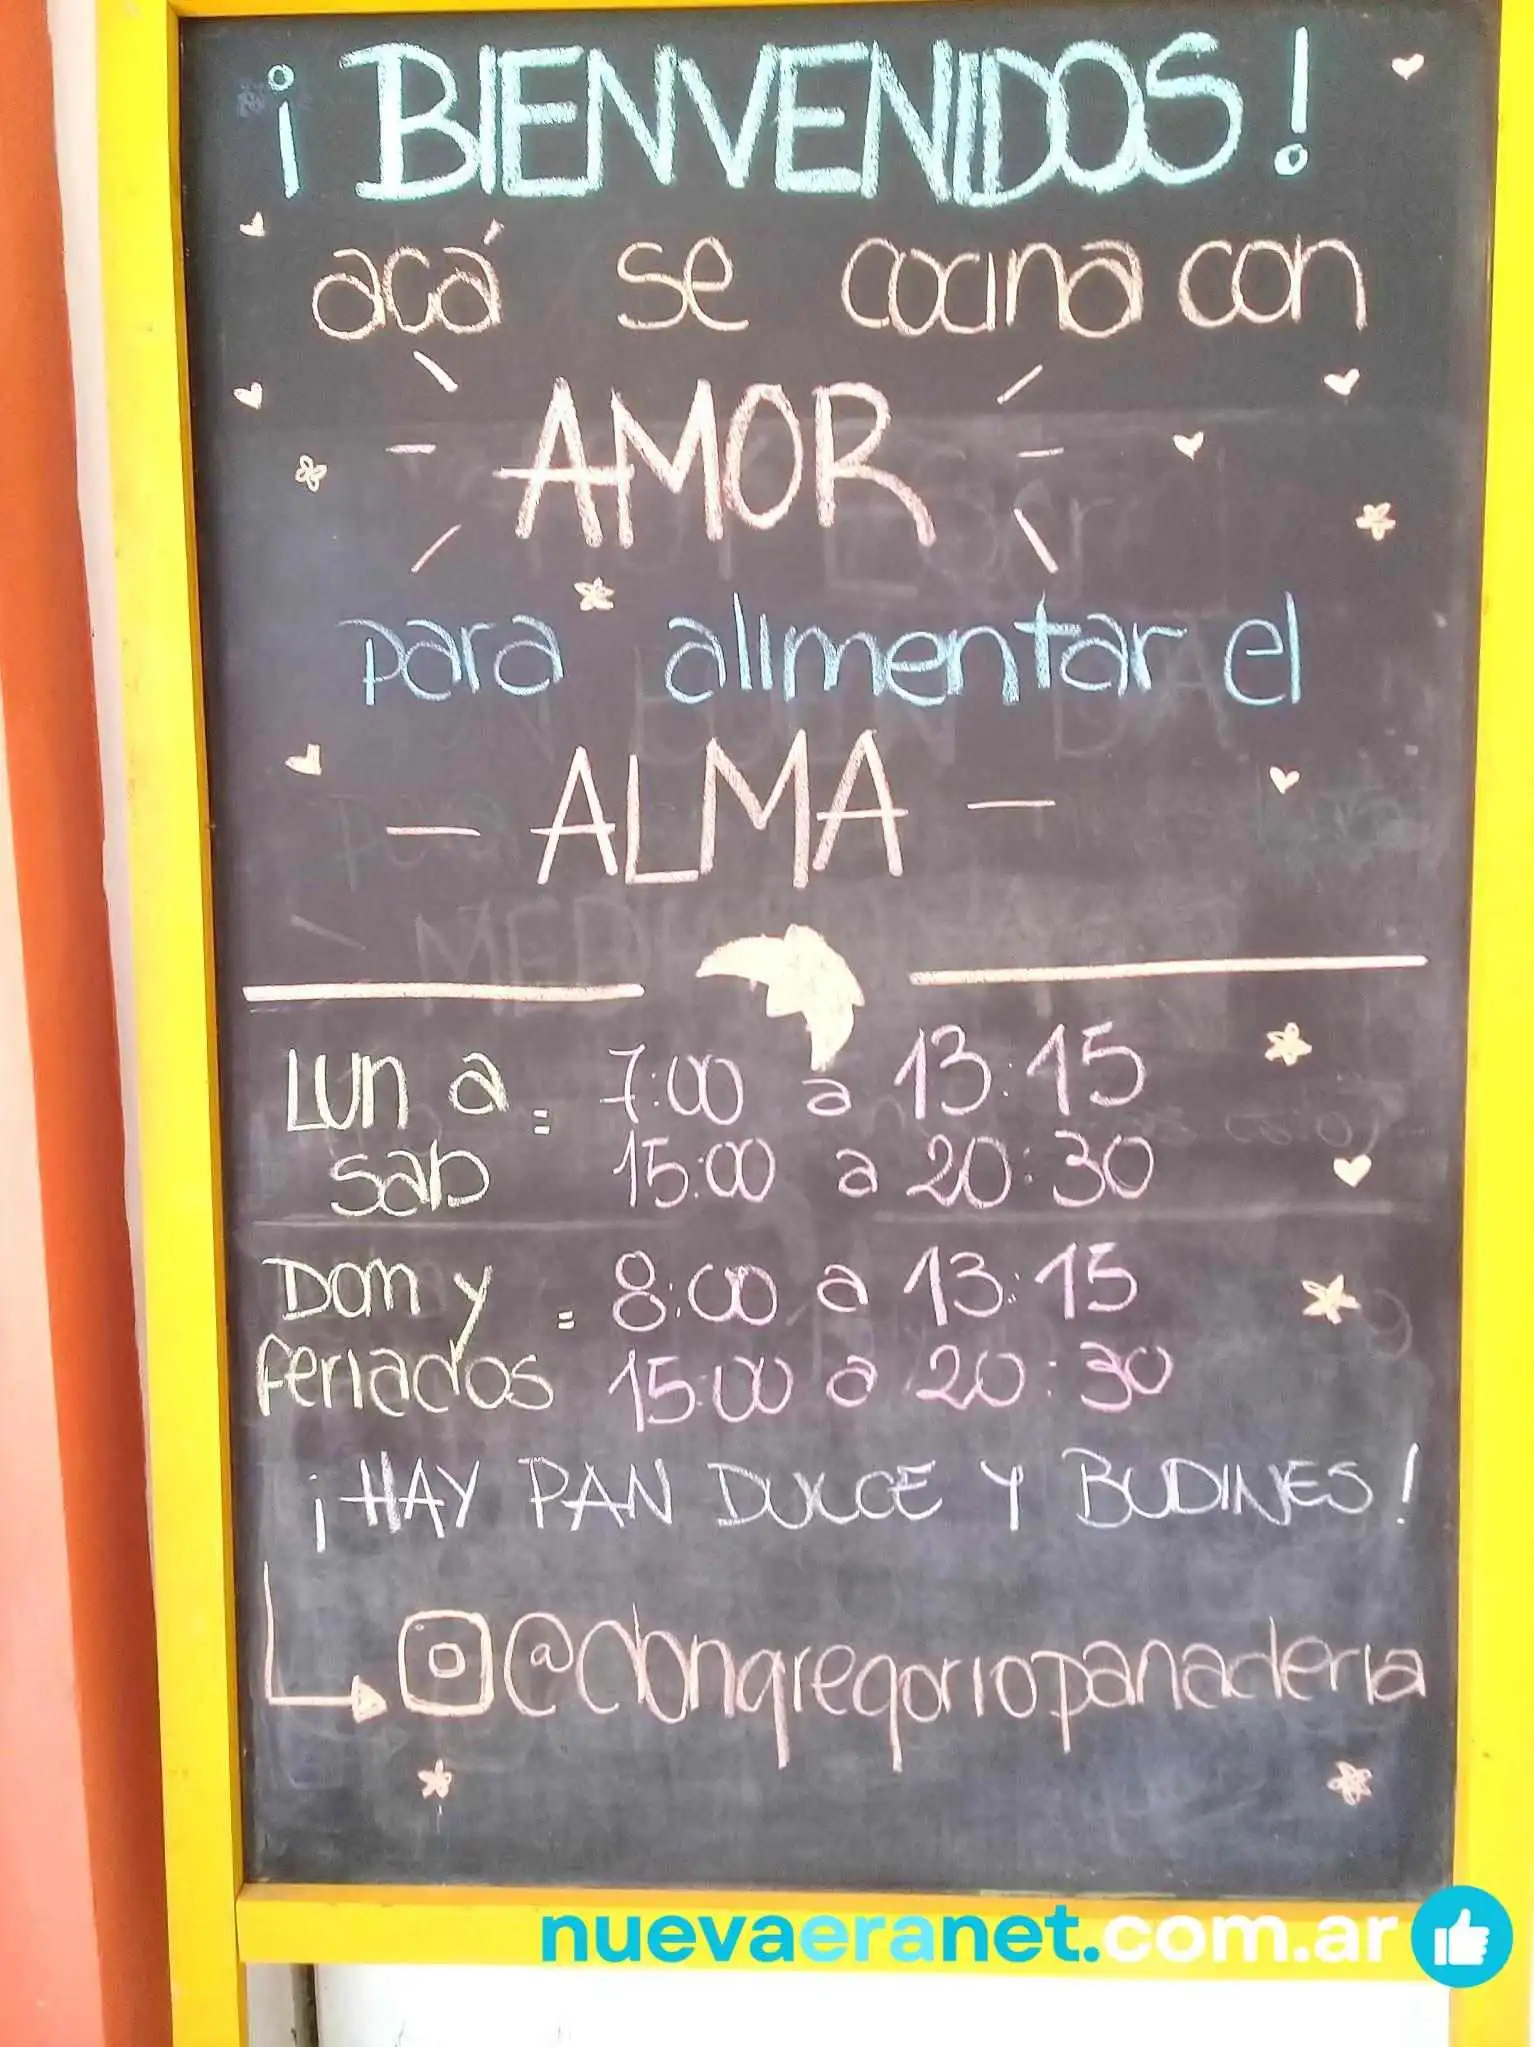 ¡BIENVENIDOS!
acá se cocina con
AMOR
para alimentar el
- ALMA -
Lun a = 7:00 a 13:15
sab 15:00 a 20:30
Dom y = 8:00 a 13:15
feriados 15:00 a 20:30
¡HAY PAN DULCE Y BUDINES!
@dongregoriopanaderia
nuevaeranet.com.ar